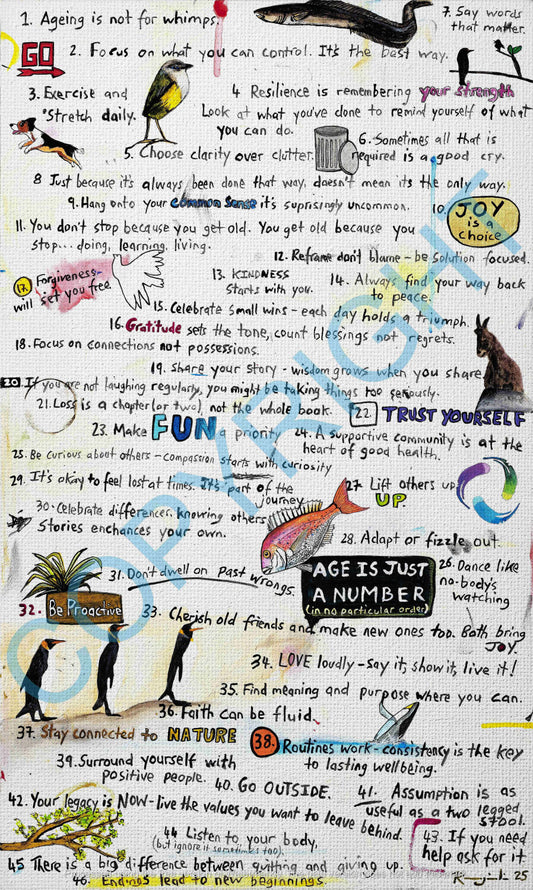 1. Ageing is not for whimps.
7. Say words
that matter.
GO
2. Focus on what you can control. It's the best way.
3. Exercise and
stretch daily.
4 Resilience is remembering your strength
Look at what you've done to remind yourself of what
you can do.
5. Choose clarity over clutter.
6. Sometimes all that is
required is a good cry.
8 Just because it's always been done that way, doesn't mean its the only way.
9. Hang onto your common sense it's suprisingly uncommon.
10. JOY
is a
choice
11. You don't stop because you get old. You get old because you
stop... doing, learning, living.
12. Reframe don't blame - be solution focused.
13. KINDNESS
starts with you.
14. Always find your way back
to peace.
17. Forgiveness-
will set you free
15. Celebrate small wins - each day holds a triumph.
16. Gratitude sets the tone, count blessings not regrets.
18. Focus on connections not possessions.
19. Share your story - wisdom grows when you share
20. If you are not laughing regularly, you might be taking things too seriously.
21. Loss is a chapter (or two), not the whole book.
22. TRUST YOURSELF
23. Make FUN a priority
24. A supportive community is at the
heart of good health.
25. Be curious about others - compassion starts with curiosity
29. It's okay to feel lost at times. It's part of the
journey
27. Lift others up
UP.
30. Celebrate differences, knowing others
stories enchances your own.
28. Adapt or fizzle out.
31. Don't dwell on past wrongs.
AGE IS JUST
A NUMBER
(in no particular order)
26. Dance like
no-body's
watching
32. Be Proactive
33. Cherish old friends and make new ones too. Both bring
JOY.
34. LOVE loudly - say it, show it, live it!
35. Find meaning and purpose where you can.
36. Faith can be fluid.
37. Stay connected to NATURE
38. Routines work - consistency is the key
to lasting wellbeing.
39. Surround yourself with
positive people.
40. GO OUTSIDE.
41. Assumption is as
useful as a two legged
stool.
42. Your legacy is NOW - live the values you want to leave
behind.
43. If you need
help ask for it
44 Listen to your body,
(but ignore it sometimes too).
45 There is a big difference between quitting and giving up.
25
46. Endings lead to new beginnings.
COPYRIGHT